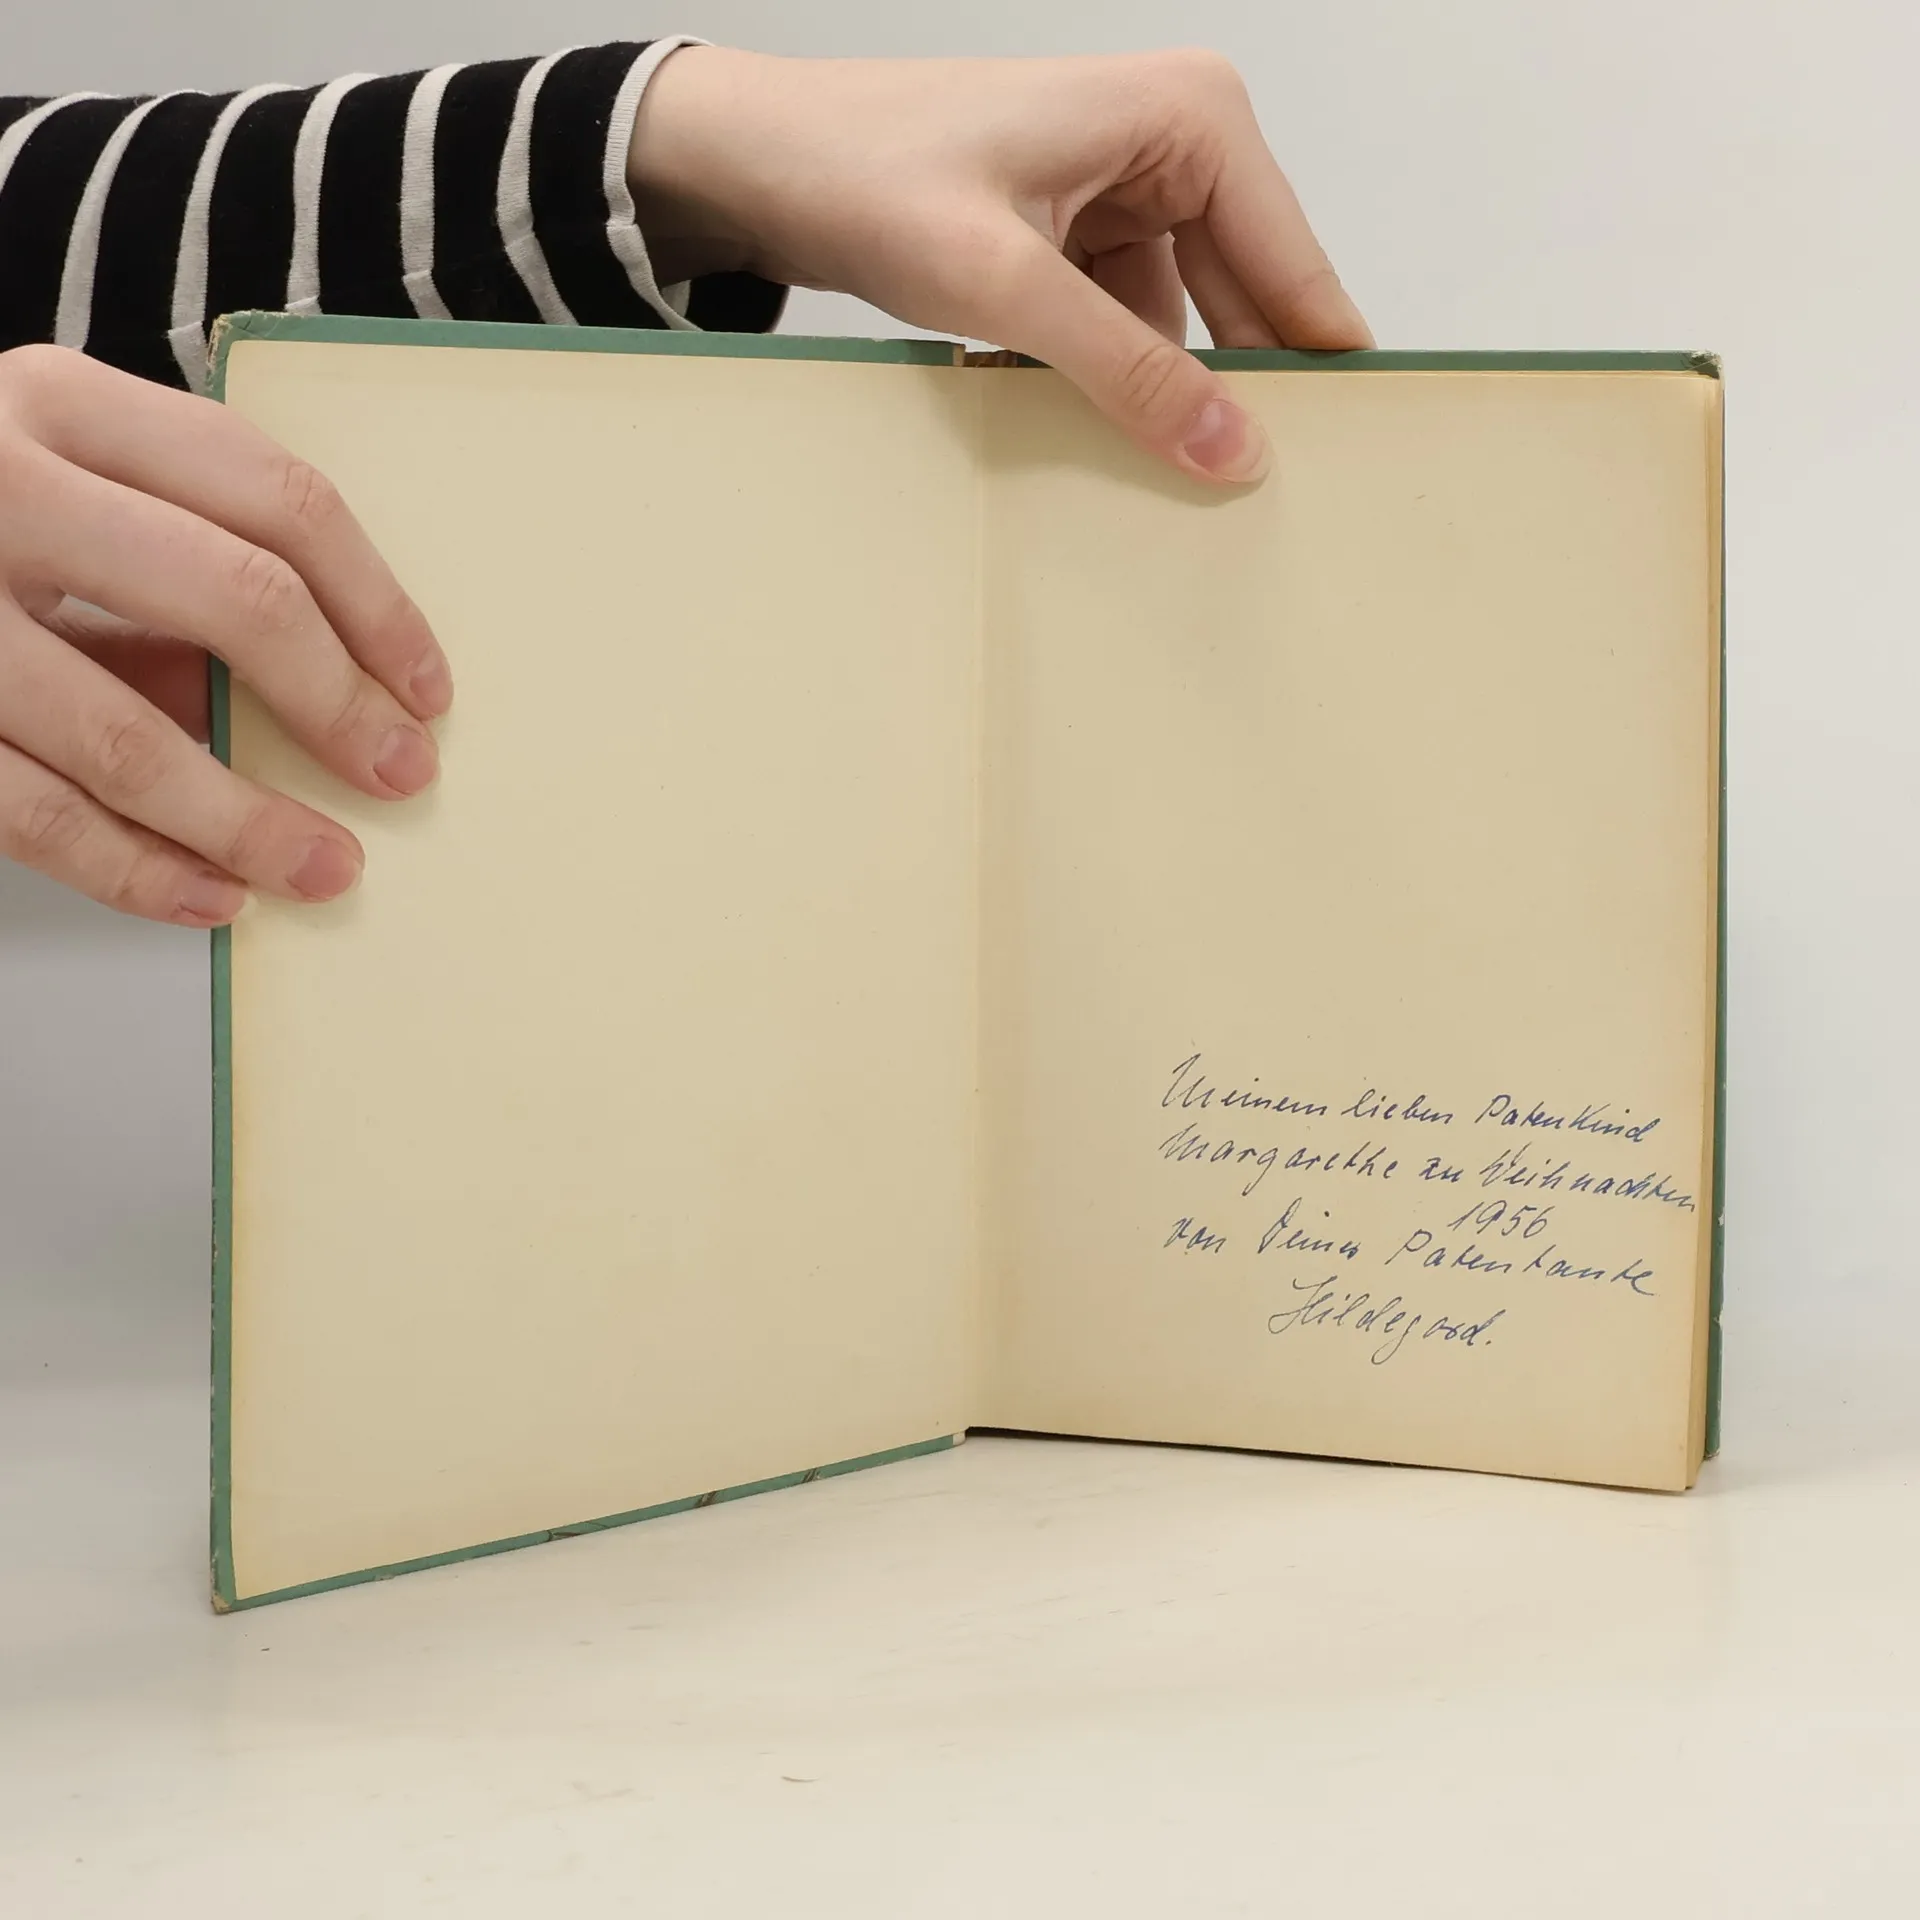 Meinem lieben Patenkind
Margarethe zu Weihnachten
1956
von Deiner Patentante
Hildegard.